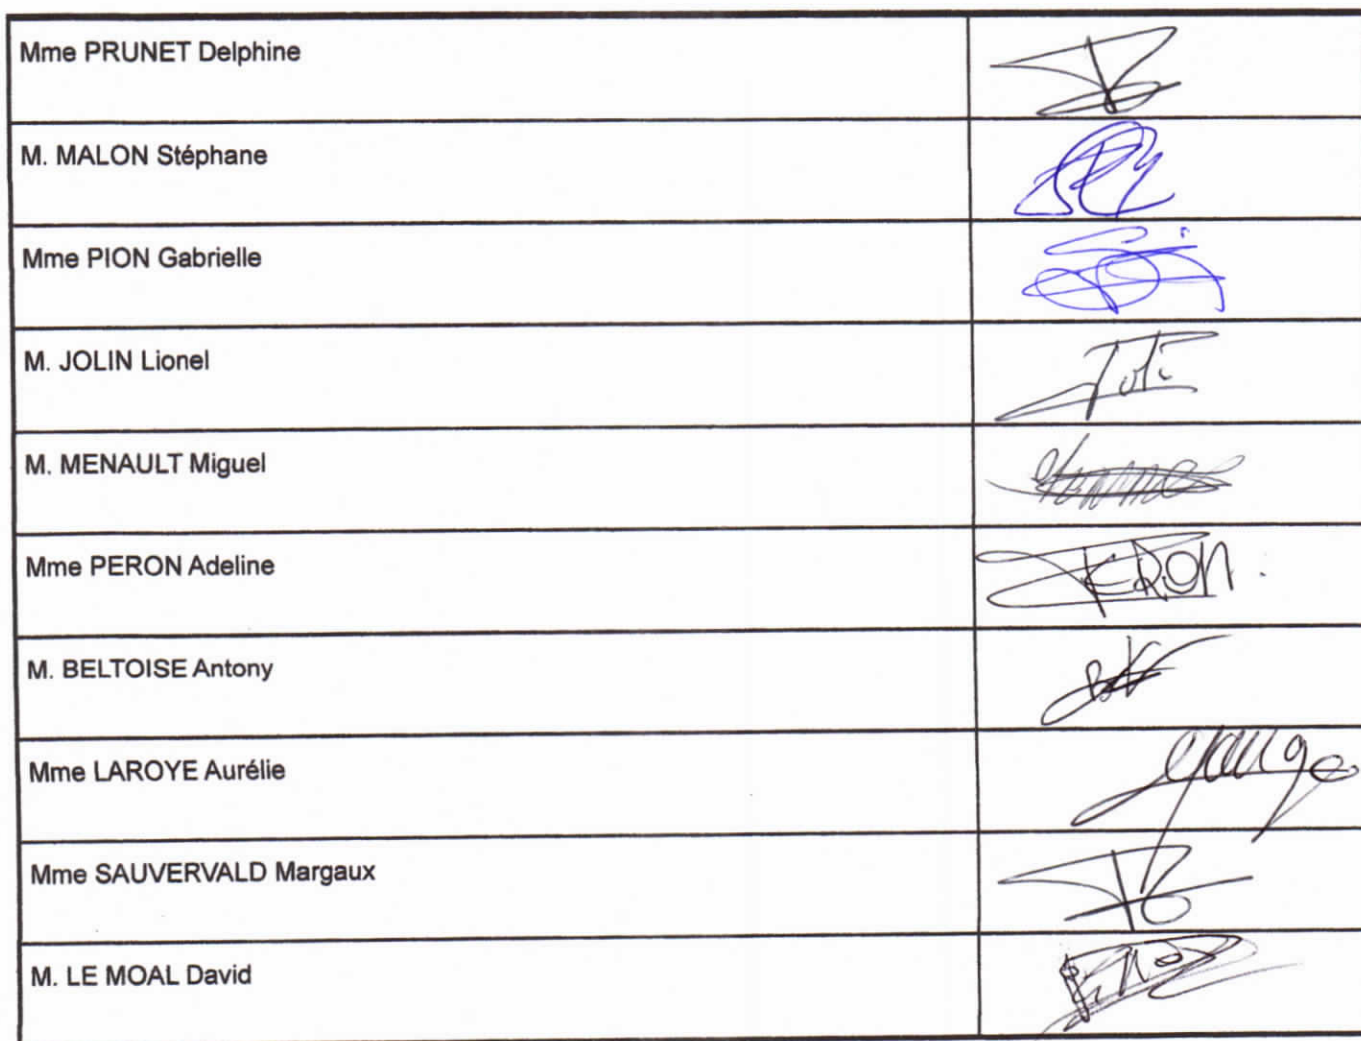 Mme PRUNET Delphine
M. MALON Stéphane
Mme PION Gabrielle
M. JOLIN Lionel
M. MENAULT Miguel
Mme PERON Adeline
PERON.
M. BELTOISE Antony
Mme LAROYE Aurélie
Mme SAUVERVALD Margaux
M. LE MOAL David